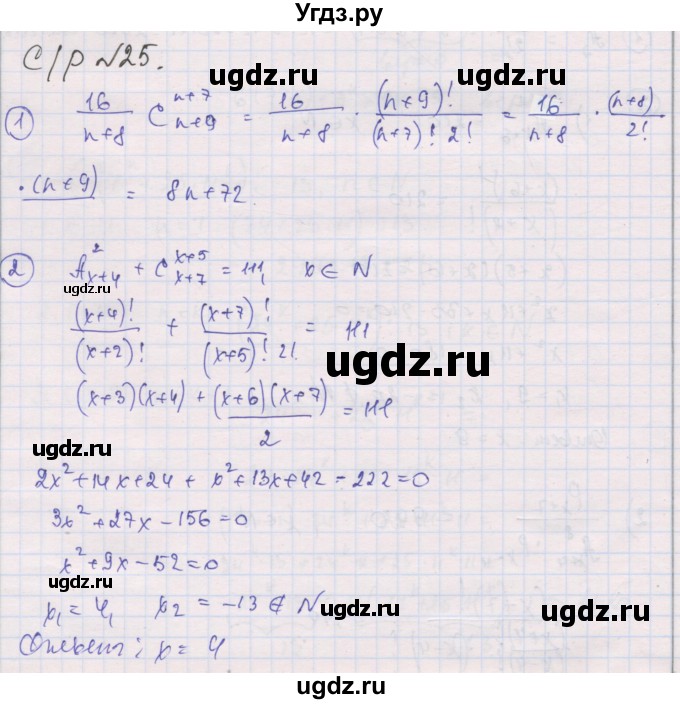 Угдз.ру
С/р №25.
ugdz.ru ugdz.ru
1 16/(n+8) C_{n+9}^{n+7} = 16/(n+8) · (n+9)!/((n+7)! 2!) = 16/(n+8) · (n+8)/2!
·(n+9) = 8n+72.
2 A_{x+4}^{2} + C_{x+7}^{x+5} = 111, x ∈ N
ugdz.ru ugdz.ru
(x+4)!/(x+2)! + (x+7)!/((x+5)! 2!) = 111
ugdz.ru
(x+3)(x+4) + (x+6)(x+7)/2 = 111
ugdz.ru
2x²+14x+24 + x²+13x+42 - 222 = 0
3x²+27x-156=0
x²+9x-52=0
ugdz.ru
x₁=4, x₂ = -13 ∉ N
ugdz.ru ugdz.ru
Ответ: x = 4
ugdz.ru